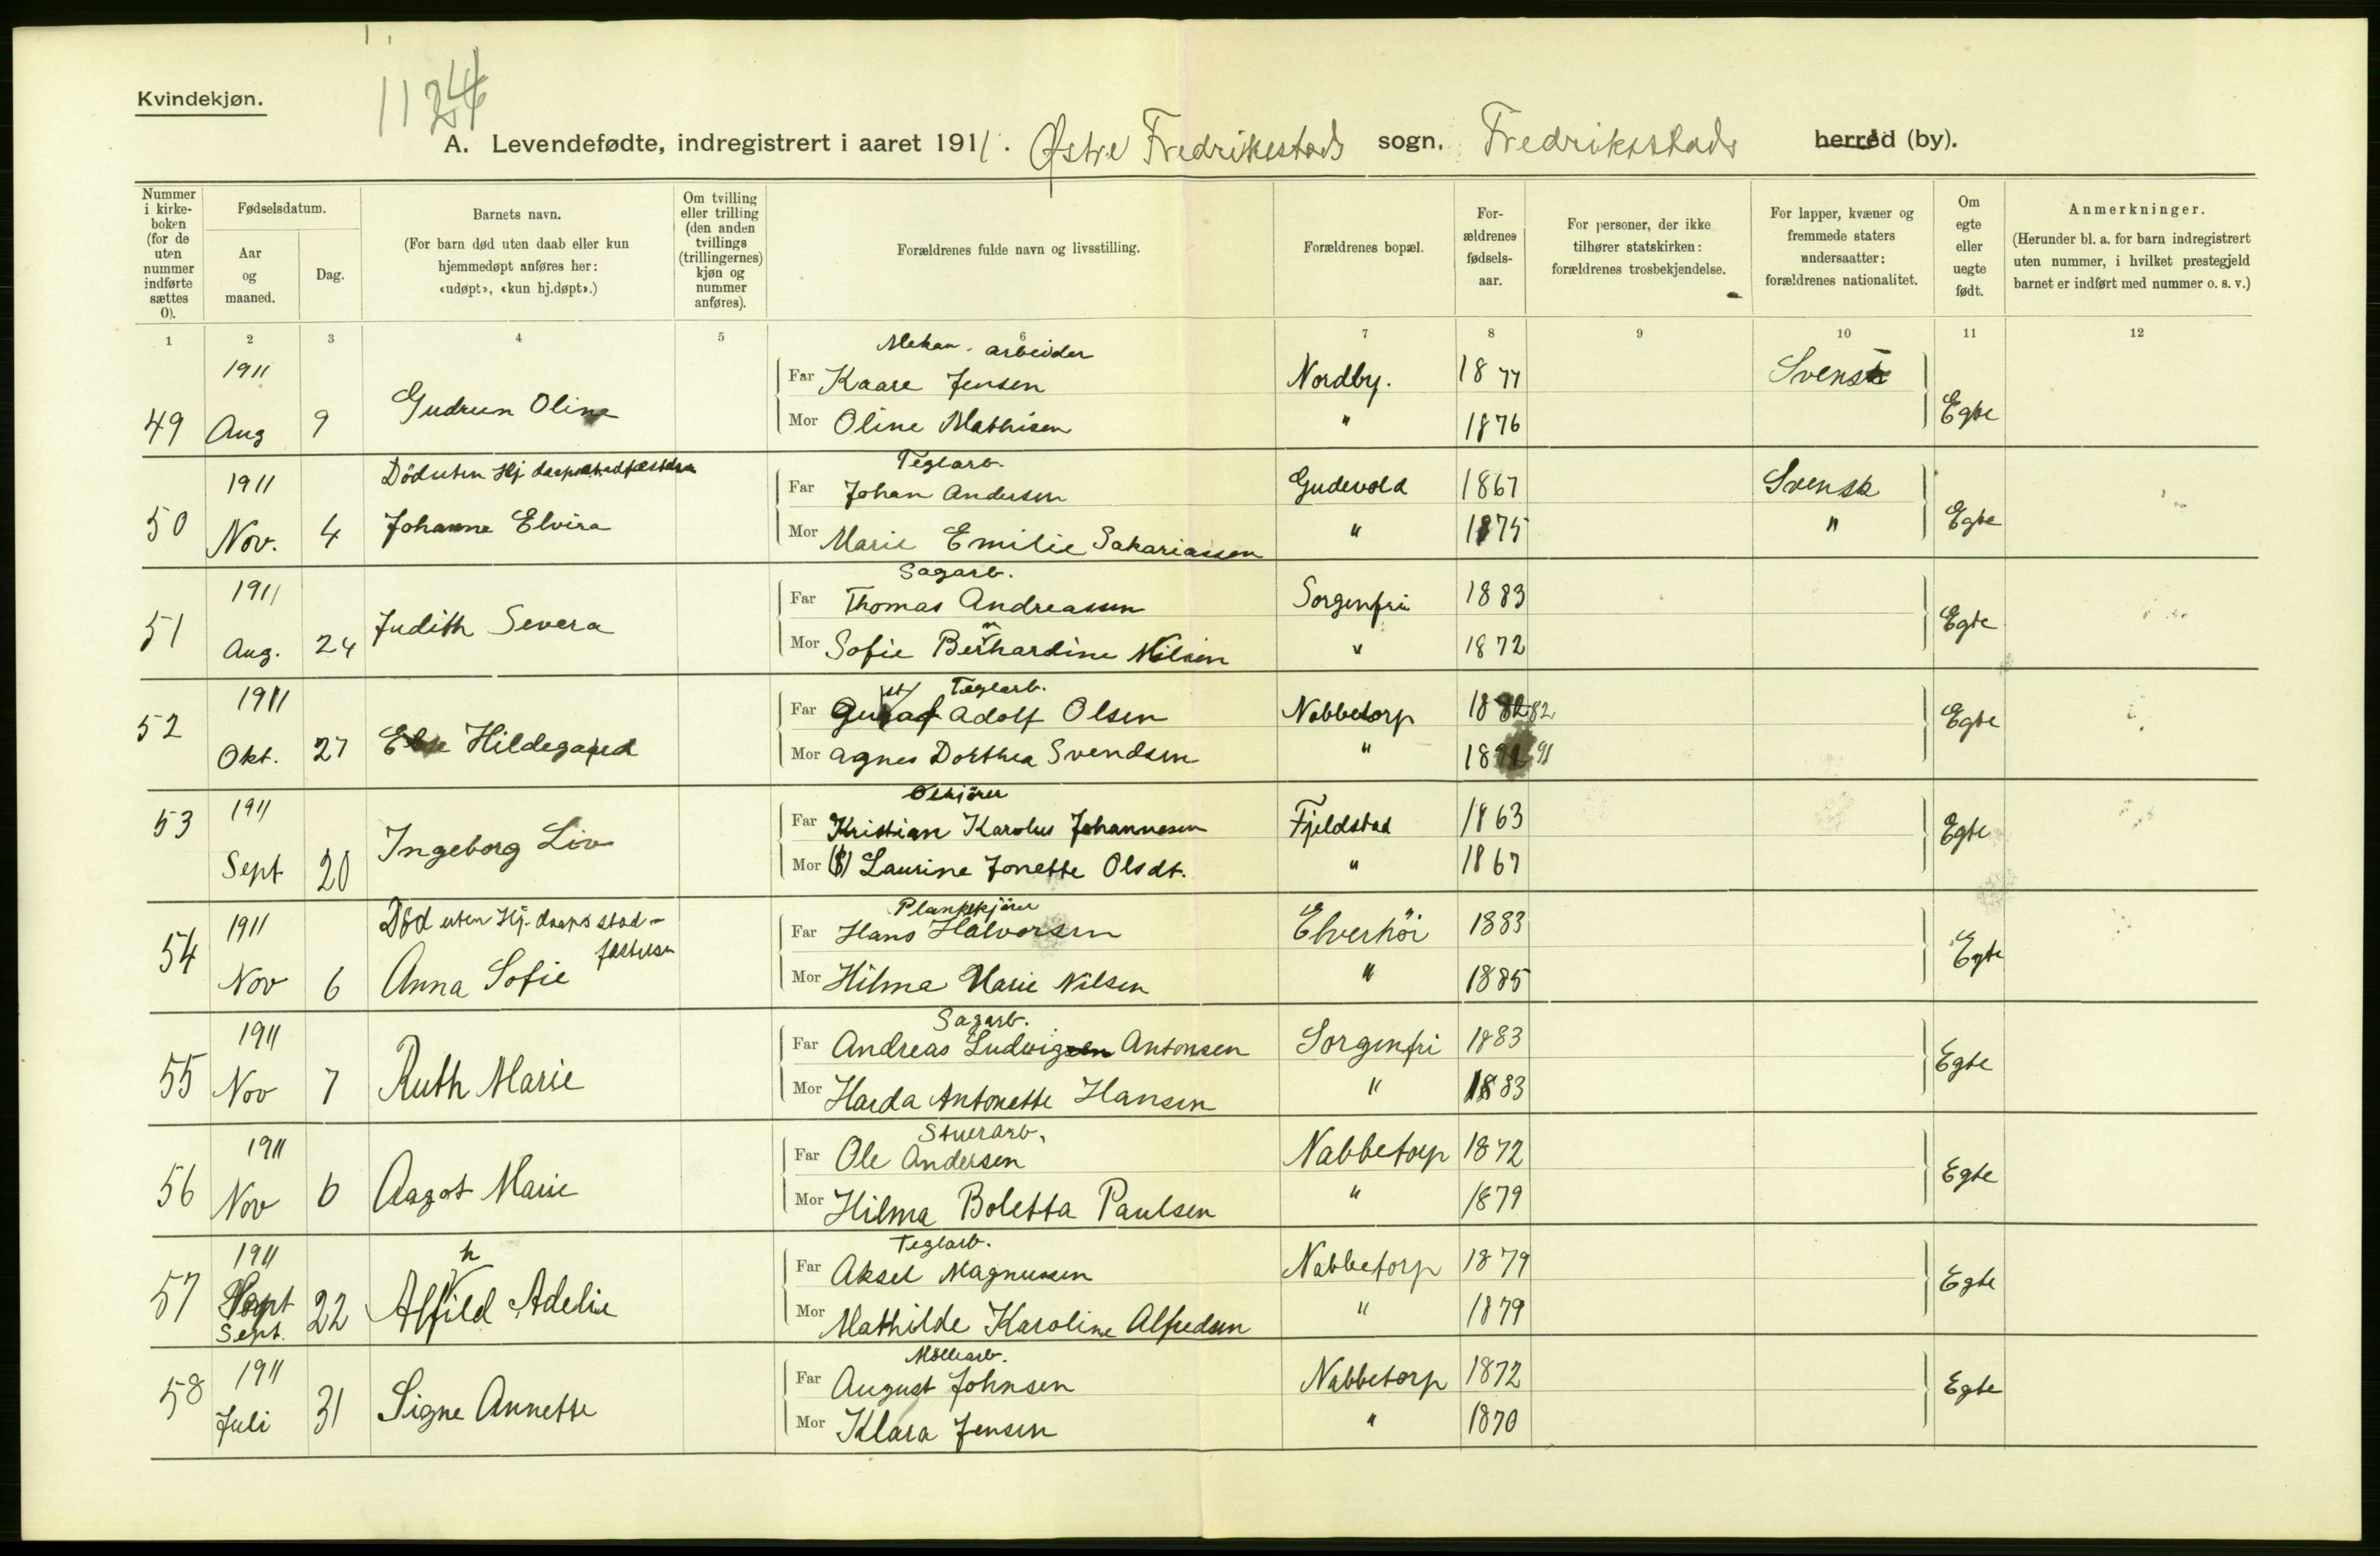 Kvindekjøn.
1124
A. Levendefødte, indregistrert i aaret 1911. Østre Fredrikstads sogn, Fredriksstads herred (by).
Nummer i kirke-boken (for de uten nummer indførte sættes 0).
Fødselsdatum.
Aar og maaned.
Dag.
Barnets navn.
(For barn død uten daab eller kun hjemmedøpt anføres her: «udøpt», «kun hj.døpt».)
Om tvilling eller trilling (den anden tvillings (trillingernes) kjøn og nummer anføres).
Forældrenes fulde navn og livsstilling.
Forældrenes bopæl.
For-ældrenes fødsels-aar.
For personer, der ikke tilhører statskirken: forældrenes trosbekjendelse.
For lapper, kvæner og fremmede staters undersaatter: forældrenes nationalitet.
Om egte eller uegte født.
Anmerkninger.
(Herunder bl. a. for barn indregistrert uten nummer, i hvilket prestegjeld barnet er indført med nummer o. s. v.)
1 2 3 4 5 6 7 8 9 10 11 12
Mekan. arbeider
1911 Far Kaare Jensen Nordby. 1877 Svensk
49 Aug 9 Gudrun Oline Mor Oline Mathisen " 1876 Egte
Død uten Hj daapsstadfæstelse Teglarb.
1911 Far Johan Andersen Gudevold 1867 Svensk
50 Nov. 4 Johanne Elvira Mor Marie Emilie Sakariassen " 1875 " Egte
Sagarb.
1911 Far Thomas Andreassen Sorgenfri 1883
51 Aug. 24 Judith Severa Mor Sofie Bernhardine Nilsen " 1872 Egte
Teglarb.
52 1911 Far Gustaf Adolf Olsen Nabbetorp 1882 82
Okt. 27 Hildegard Mor Agnes Dorthea Svendsen " 1891 91 Egte
53 1911 Far Kristian Karolus Johannesen Fjeldstad 1863
Sept 20 Ingeborg Liv Mor Laurine Jonette Olsdt. " 1867 Egte
Død uten Hj. daaps stad-fæstelse Plankekjører
1911 Far Hans Halvorsen Elverhöi 1883
54 Nov 6 Anna Sofie Mor Hilma Marie Nilsen " 1885 Egte
Sagarb.
1911 Far Andreas Ludvigsen Antonsen Sorgenfri 1883
55 Nov 7 Ruth Marie Mor Harda Antonette Hansen " 1883 Egte
Stuerarb.
1911 Far Ole Andersen Nabbetorp 1872
56 Nov 6 Aagot Marie Mor Hilma Boletta Paulsen " 1879 Egte
Teglarb.
1911 h Far Aksel Magnussen Nabbetorp 1879
57 Sept. 22 Alfild Adelie Mor Mathilde Karoline Alfredsen " 1879 Egte
Möllearb.
1911 Far August Johnsen Nabbetorp 1872
58 Juli 31 Signe Annette Mor Klara Jensen " 1870 Egte